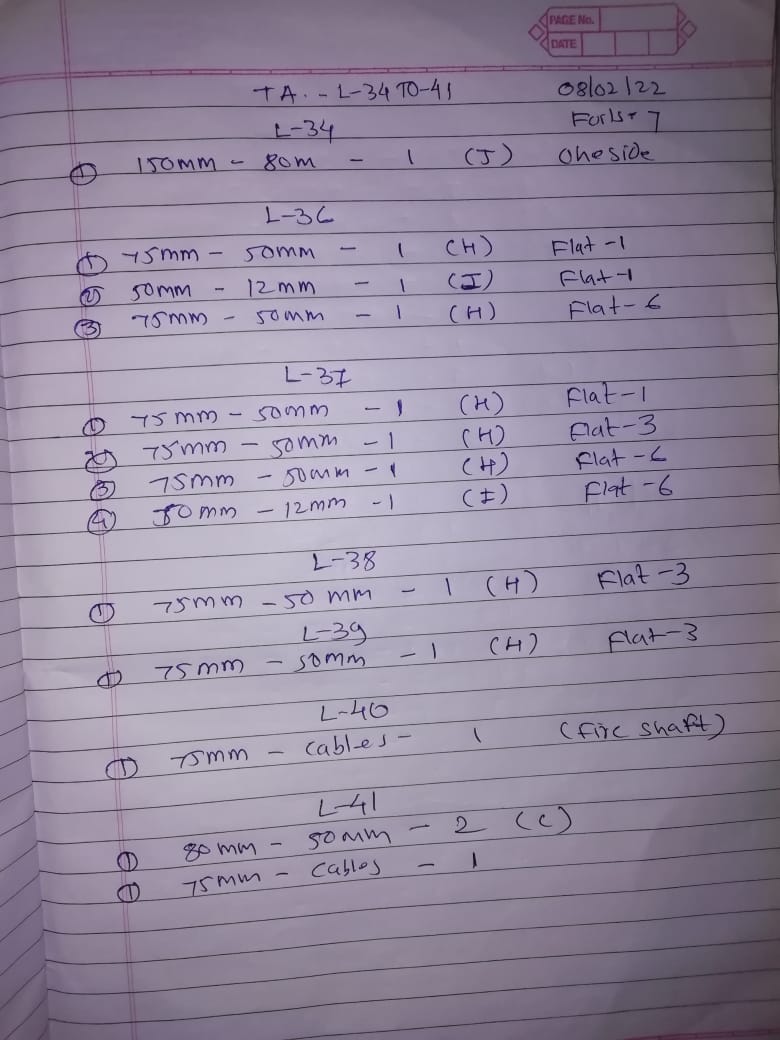 PAGE No.
DATE
TA. - L-34 TO-41 08/02/22
L-34 7
① 150mm - 80m - 1 (J) One side
L-36
① 75mm - 50mm - 1 (H) Flat -1
② 50mm - 12mm - 1 (I) Flat-1
③ 75mm - 50mm - 1 (H) Flat-6
L-37
① 75mm - 50mm - 1 (H) Flat-1
② 75mm - 50mm - 1 (H) Flat-3
③ 75mm - 50mm - 1 (H) Flat -6
④ 50mm - 12mm - 1 (I) Flat -6
L-38
① 75mm - 50mm - 1 (H) Flat -3
L-39
① 75mm - 50mm - 1 (H) Flat-3
L-40
① 75mm - cables - 1 (fire shaft)
L-41
① 80mm - 50mm - 2 (C)
① 75mm - cables - 1